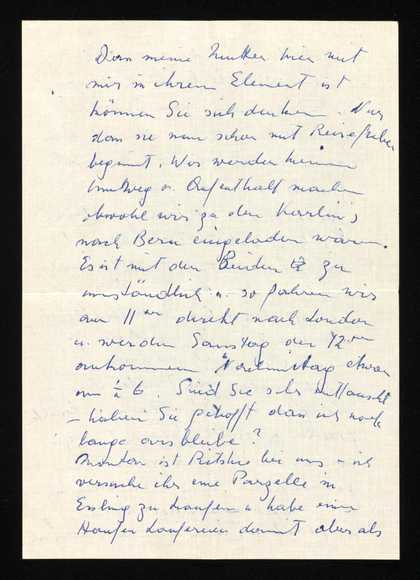 Dass meine Mutter hier mit
mir in ihrem Element ist
können Sie sich denken. Nur
dass sie nun schon mit Reisefieber
beginnt. Wir werden keinen
Umweg o. Aufenthalt machen
obwohl wir zu den Karlin's
nach Bern eingeladen wären.
Es ist mit den Beiden zu
umständlich u. so fahren wir
am 11ten direkt nach London
u. werden Samstag den 12ten
ankommen Nachmittag etwa
um ½ 6. Sind Sie sehr enttäuscht
– haben Sie gehofft dass ich noch
lange ausbleibe?
Montag ist bei uns – ich
versuche eine Parzelle in
Essling zu kaufen u habe einen
Haufen Laufereien damit aber als